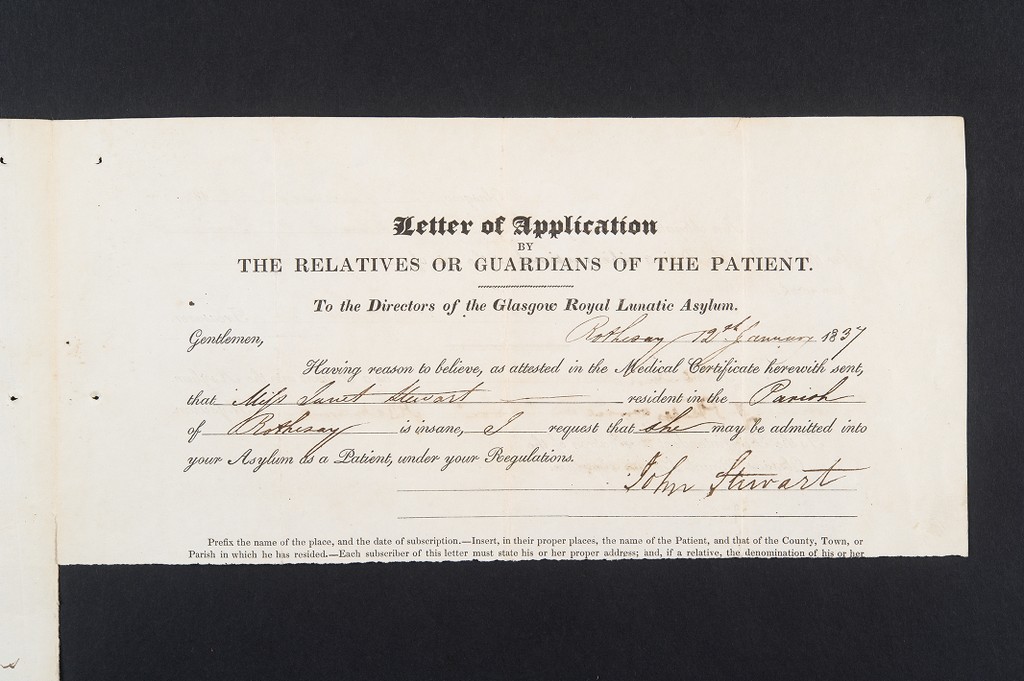 Letter of Application
BY
THE RELATIVES OR GUARDIANS OF THE PATIENT.
To the Directors of the Glasgow Royal Lunatic Asylum.
Gentlemen, Rothesay 12th January 1837
Having reason to believe, as attested in the Medical Certificate herewith sent,
that Miss Janet Stewart resident in the Parish
of Rothesay is insane, I request that she may be admitted into
your Asylum as a Patient, under your Regulations.
John Stewart
Prefix the name of the place, and the date of subscription.—Insert, in their proper places, the name of the Patient, and that of the County, Town, or
Parish in which he has resided.—Each subscriber of this letter must state his or her proper address; and, if a relative, the denomination of his or her